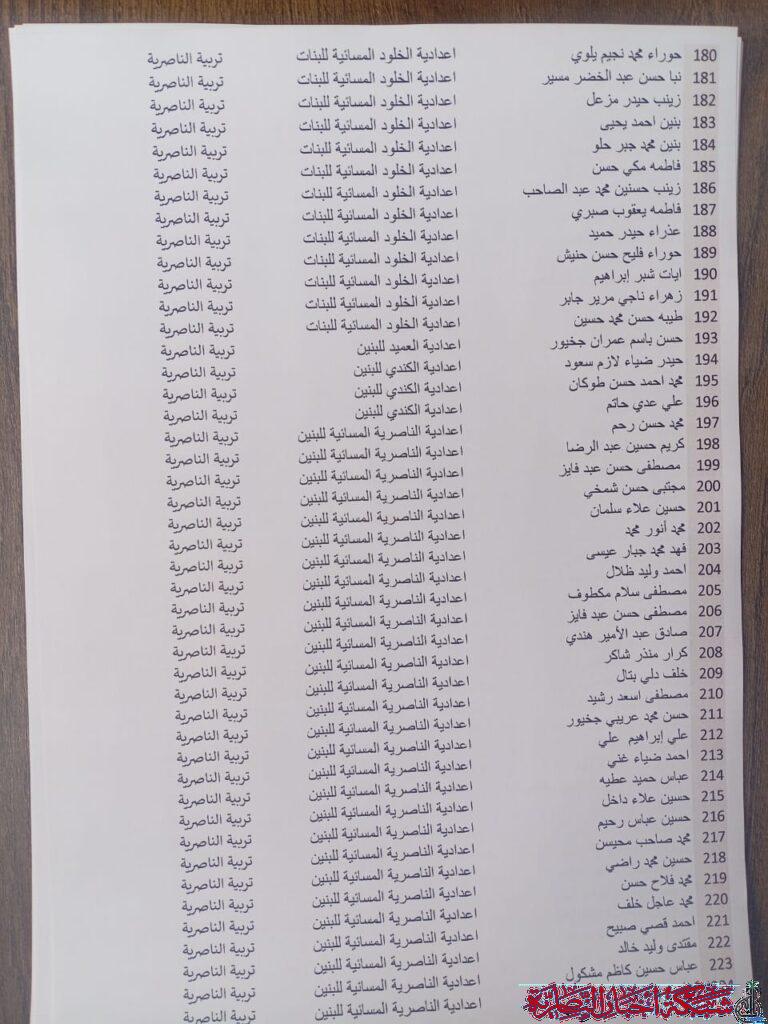 180 حوراء محمد نجيم يلوي اعدادية الخلود المسائية للبنات تربية الناصرية
181 نبا حسن عبد الخضر مسير اعدادية الخلود المسائية للبنات تربية الناصرية
182 زينب حيدر مزعل اعدادية الخلود المسائية للبنات تربية الناصرية
183 بنين احمد يحيى اعدادية الخلود المسائية للبنات تربية الناصرية
184 بنين محمد جبر حلو اعدادية الخلود المسائية للبنات تربية الناصرية
185 فاطمه مكي حسن اعدادية الخلود المسائية للبنات تربية الناصرية
186 زينب حسنين محمد عبد الصاحب اعدادية الخلود المسائية للبنات تربية الناصرية
187 فاطمه يعقوب صبري اعدادية الخلود المسائية للبنات تربية الناصرية
188 عذراء حيدر حميد اعدادية الخلود المسائية للبنات تربية الناصرية
189 حوراء فليح حسن حنيش اعدادية الخلود المسائية للبنات تربية الناصرية
190 ايات شبر إبراهيم اعدادية الخلود المسائية للبنات تربية الناصرية
191 زهراء ناجي مرير جابر اعدادية الخلود المسائية للبنات تربية الناصرية
192 طيبه حسن محمد حسين اعدادية الخلود المسائية للبنات تربية الناصرية
193 حسن باسم عمران جخيور اعدادية العميد للبنين تربية الناصرية
194 حيدر ضياء لازم سعود اعدادية الكندي للبنين تربية الناصرية
195 محمد احمد حسن طوكان اعدادية الكندي للبنين تربية الناصرية
196 علي عدي حاتم اعدادية الكندي للبنين تربية الناصرية
197 محمد حسن رحم اعدادية الناصرية المسائية للبنين تربية الناصرية
198 كريم حسين عبد الرضا اعدادية الناصرية المسائية للبنين تربية الناصرية
199 مصطفى حسن عبد فايز اعدادية الناصرية المسائية للبنين تربية الناصرية
200 مجتبى حسن شمخي اعدادية الناصرية المسائية للبنين تربية الناصرية
201 حسين علاء سلمان اعدادية الناصرية المسائية للبنين تربية الناصرية
202 محمد أنور محمد اعدادية الناصرية المسائية للبنين تربية الناصرية
203 فهد محمد جبار عيسى اعدادية الناصرية المسائية للبنين تربية الناصرية
204 احمد وليد ظلال اعدادية الناصرية المسائية للبنين تربية الناصرية
205 مصطفى سلام مكطوف اعدادية الناصرية المسائية للبنين تربية الناصرية
206 مصطفى حسن عبد فايز اعدادية الناصرية المسائية للبنين تربية الناصرية
207 صادق عبد الأمير هندي اعدادية الناصرية المسائية للبنين تربية الناصرية
208 كرار منذر شاكر اعدادية الناصرية المسائية للبنين تربية الناصرية
209 خلف دلي بتال اعدادية الناصرية المسائية للبنين تربية الناصرية
210 مصطفى اسعد رشيد اعدادية الناصرية المسائية للبنين تربية الناصرية
211 حسن محمد عريبي جخيور اعدادية الناصرية المسائية للبنين تربية الناصرية
212 علي إبراهيم علي اعدادية الناصرية المسائية للبنين تربية الناصرية
213 احمد ضياء غني اعدادية الناصرية المسائية للبنين تربية الناصرية
214 عباس حميد عطيه اعدادية الناصرية المسائية للبنين تربية الناصرية
215 حسين علاء داخل اعدادية الناصرية المسائية للبنين تربية الناصرية
216 حسين عباس رحيم اعدادية الناصرية المسائية للبنين تربية الناصرية
217 محمد صاحب محيسن اعدادية الناصرية المسائية للبنين تربية الناصرية
218 حسين محمد راضي اعدادية الناصرية المسائية للبنين تربية الناصرية
219 محمد فلاح حسن اعدادية الناصرية المسائية للبنين تربية الناصرية
220 محمد عاجل خلف اعدادية الناصرية المسائية للبنين تربية الناصرية
221 احمد قصي صبيح اعدادية الناصرية المسائية للبنين تربية الناصرية
222 مقتدى وليد خالد اعدادية الناصرية المسائية للبنين تربية الناصرية
223 عباس حسين كاظم مشكول اعدادية الناصرية المسائية للبنين تربية الناصرية
شبكة اخبار الناصرية